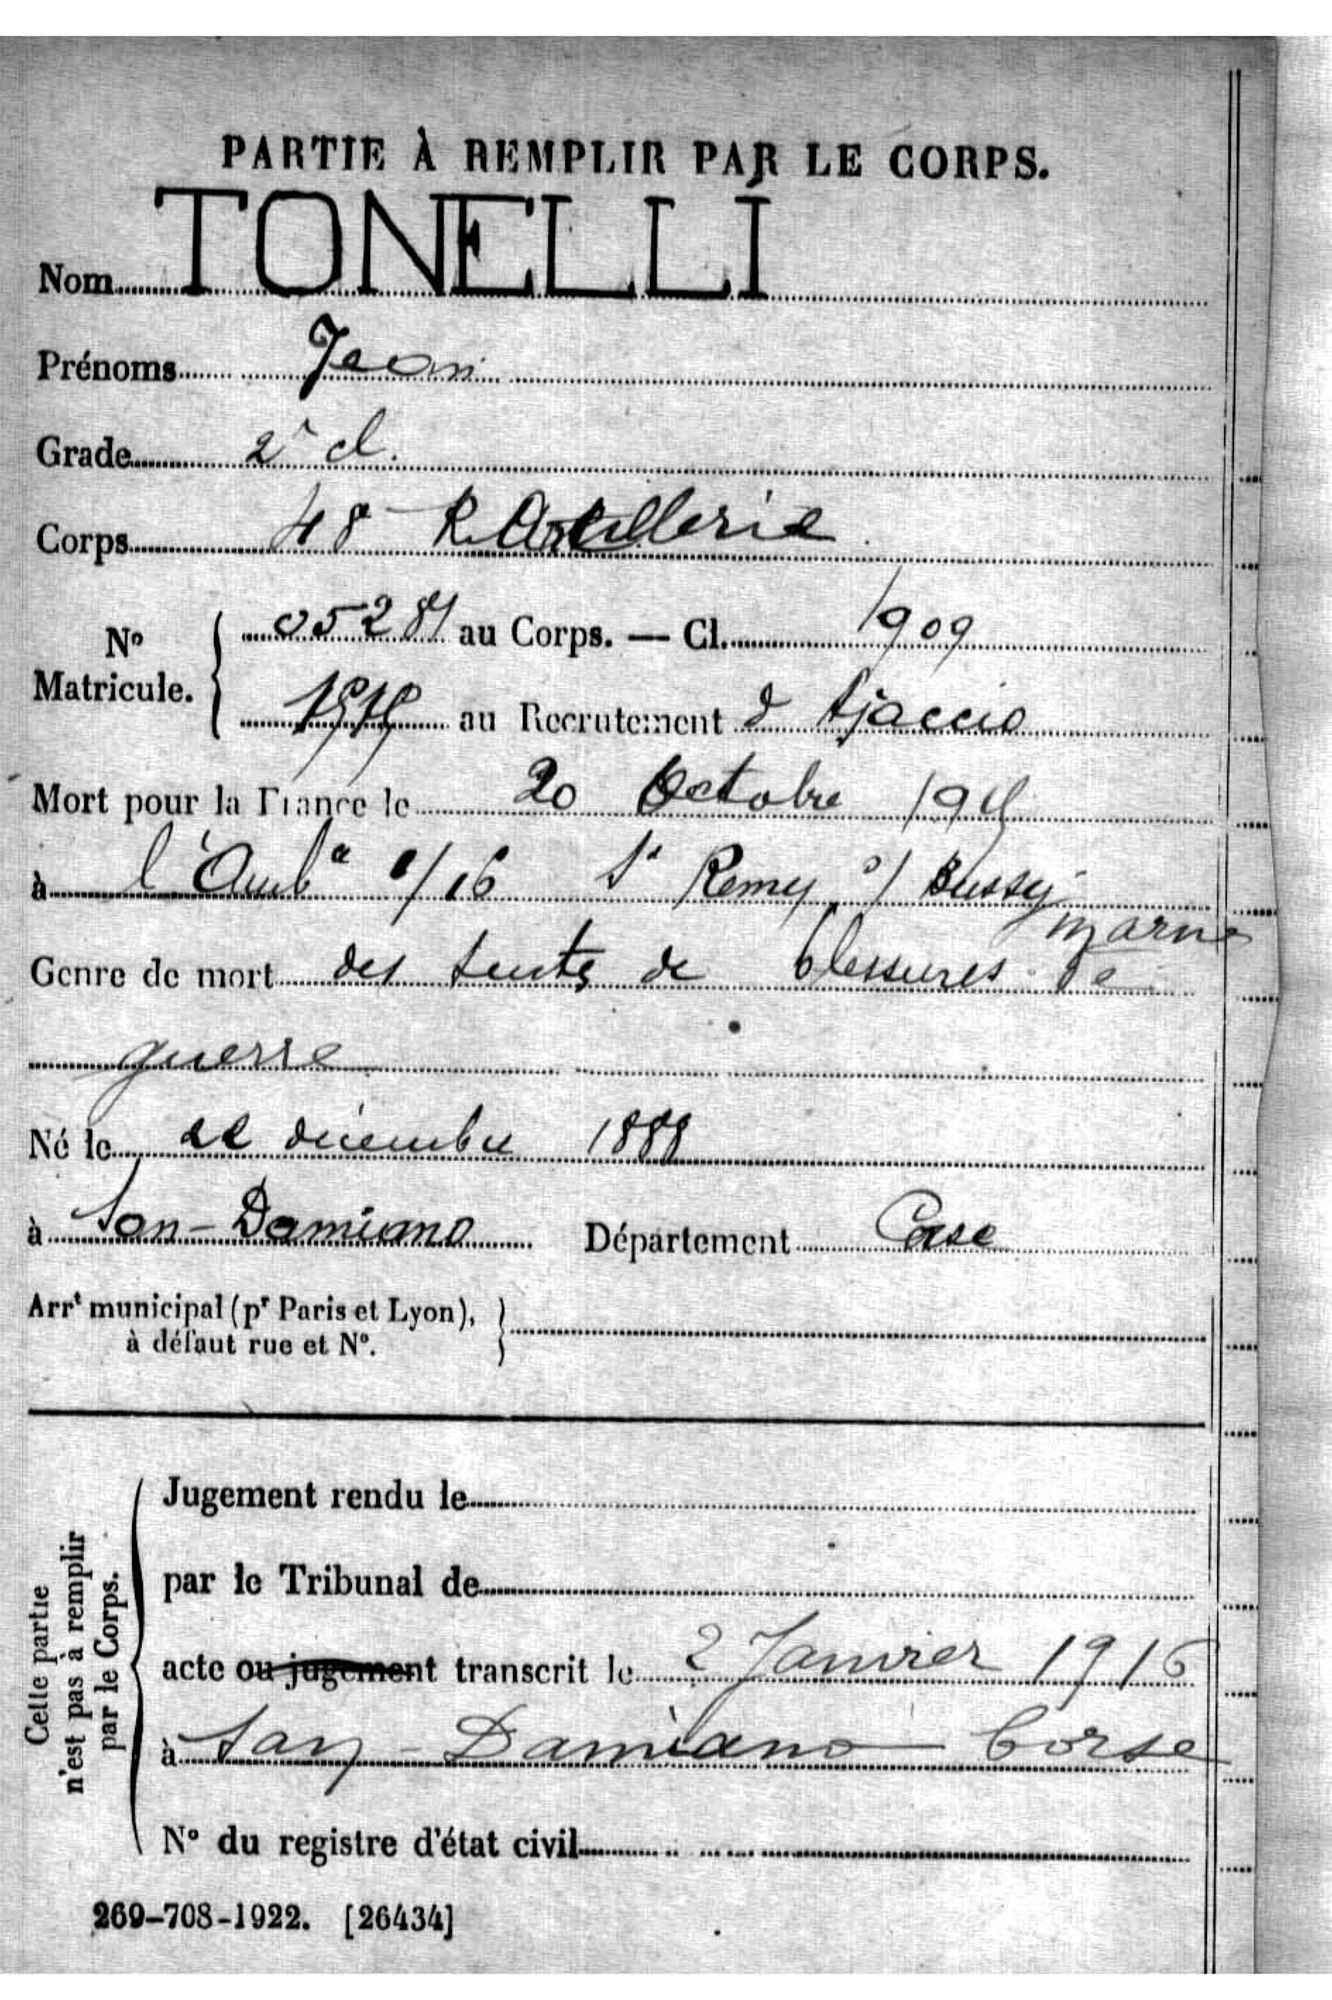 PARTIE À REMPLIR PAR LE CORPS.
Nom TONELLI
Prénoms Jean
Grade 2e cl.
Corps 48e R. Artillerie
No Matricule. 05281 au Corps. — Cl. 1909
au Recrutement d Ajaccio
Mort pour la France le 20 Octobre 1915
à l'Ambce 1/16 St Remy s/ Bussy
Marne
Genre de mort des suites de blessures de
guerre
Né le décembre 1888
à San-Damiano Département Corse
Arrt municipal (pr Paris et Lyon),
à défaut rue et No.
Cette partie
n'est pas à remplir
par le Corps.
Jugement rendu le
par le Tribunal de
acte ou jugement transcrit le 2 Janvier 1916
à San-Damiano Corse
No du registre d'état civil
269-708-1922. [26434]